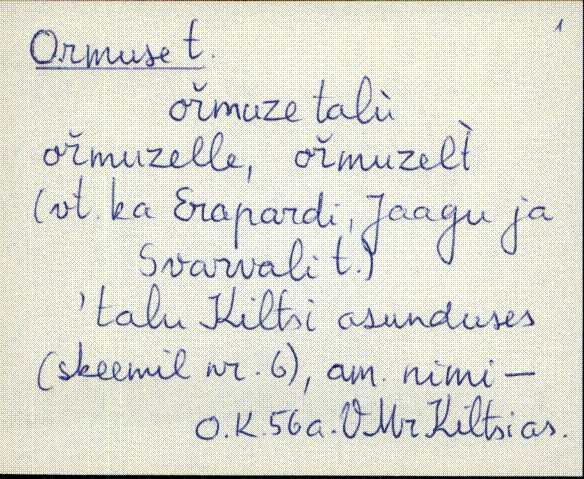 1
Ormuse t.
ořmuze talù
ořmuzelle, ořmuzelt̀
(vt. ka Erapardi, Jaagu ja
Svarvali t.)
'talu Kiltsi asunduses
(skeemil nr. 6), am. nimi –
O.K. 56 a. VMr Kiltsi as.